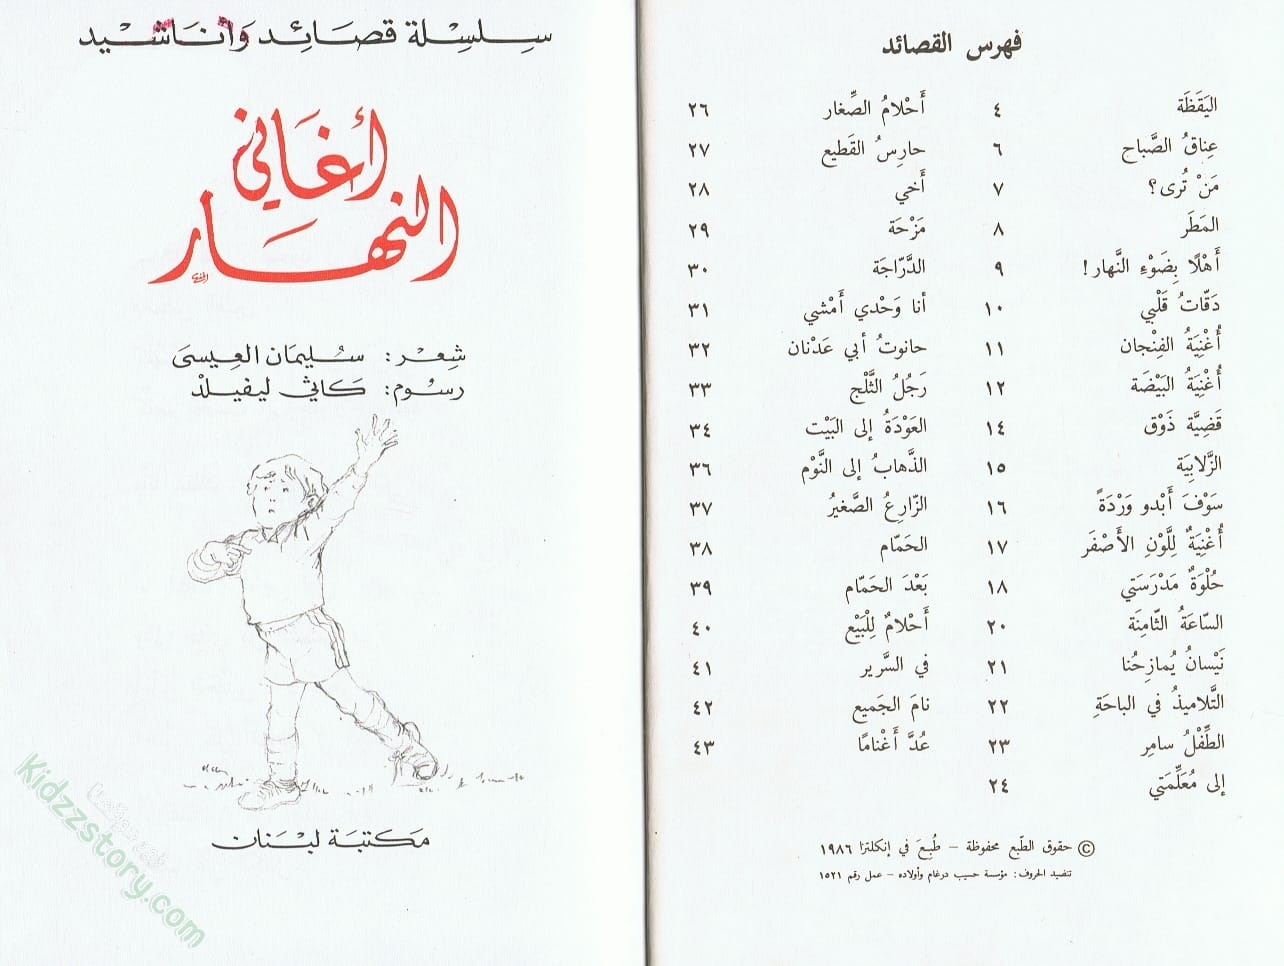 سِلسِلة قصَائِد وَأناشيد
أغَاني
النهَار
شِعْر: سُليمَان العِيسَى
رسوُم: كَاثي ليفيلدْ
مَكتبَة لبْنَان
Kidzzstory.com
فهرس القصائد
اليَقَظَة ٤
عِناقُ الصَّباح ٦
مَنْ تُرى؟ ٧
المَطَر ٨
أَهْلًا بِضَوْءِ النَّهار! ٩
دَقّاتُ قَلْبي ١٠
أُغْنِيَةُ الفِنْجان ١١
أُغْنِيَةُ البَيْضَة ١٢
قَضِيَّة ذَوْق ١٤
الزَّلابِيَة ١٥
سَوْفَ أَبْدو وَرْدَةً ١٦
أُغْنِيَةٌ لِلَّوْنِ الأَصْفَر ١٧
حُلْوَةٌ مَدْرَسَتي ١٨
السّاعَةُ الثّامِنَة ٢٠
نَيْسانُ يُمازِحُنا ٢١
التَّلاميذُ في الباحَةِ ٢٢
الطِّفْلُ سامِر ٢٣
إلى مُعَلِّمَتي ٢٤
أَحْلامُ الصِّغار ٢٦
حارِسُ القَطيع ٢٧
أَخي ٢٨
مَزْحَة ٢٩
الدَّرّاجَة ٣٠
أنا وَحْدي أَمْشي ٣١
حانوتُ أبي عَدْنان ٣٢
رَجُلُ الثَّلْج ٣٣
العَوْدَةُ إلى البَيْت ٣٤
الذَّهابُ إلى النَّوْم ٣٦
الزّارِعُ الصَّغيرُ ٣٧
الحَمّام ٣٨
بَعْدَ الحَمّام ٣٩
أَحْلامٌ لِلْبَيْع ٤٠
في السَّرير ٤١
نامَ الجَميع ٤٢
عُدَّ أَغْنامًا ٤٣
© حقوق الطّبع محفوظة – طُبِعَ في إنكلترا ١٩٨٦
تنضيد الحروف: مؤسسة حسيب درغام وأولاده – عمل رقم ١٥٢١